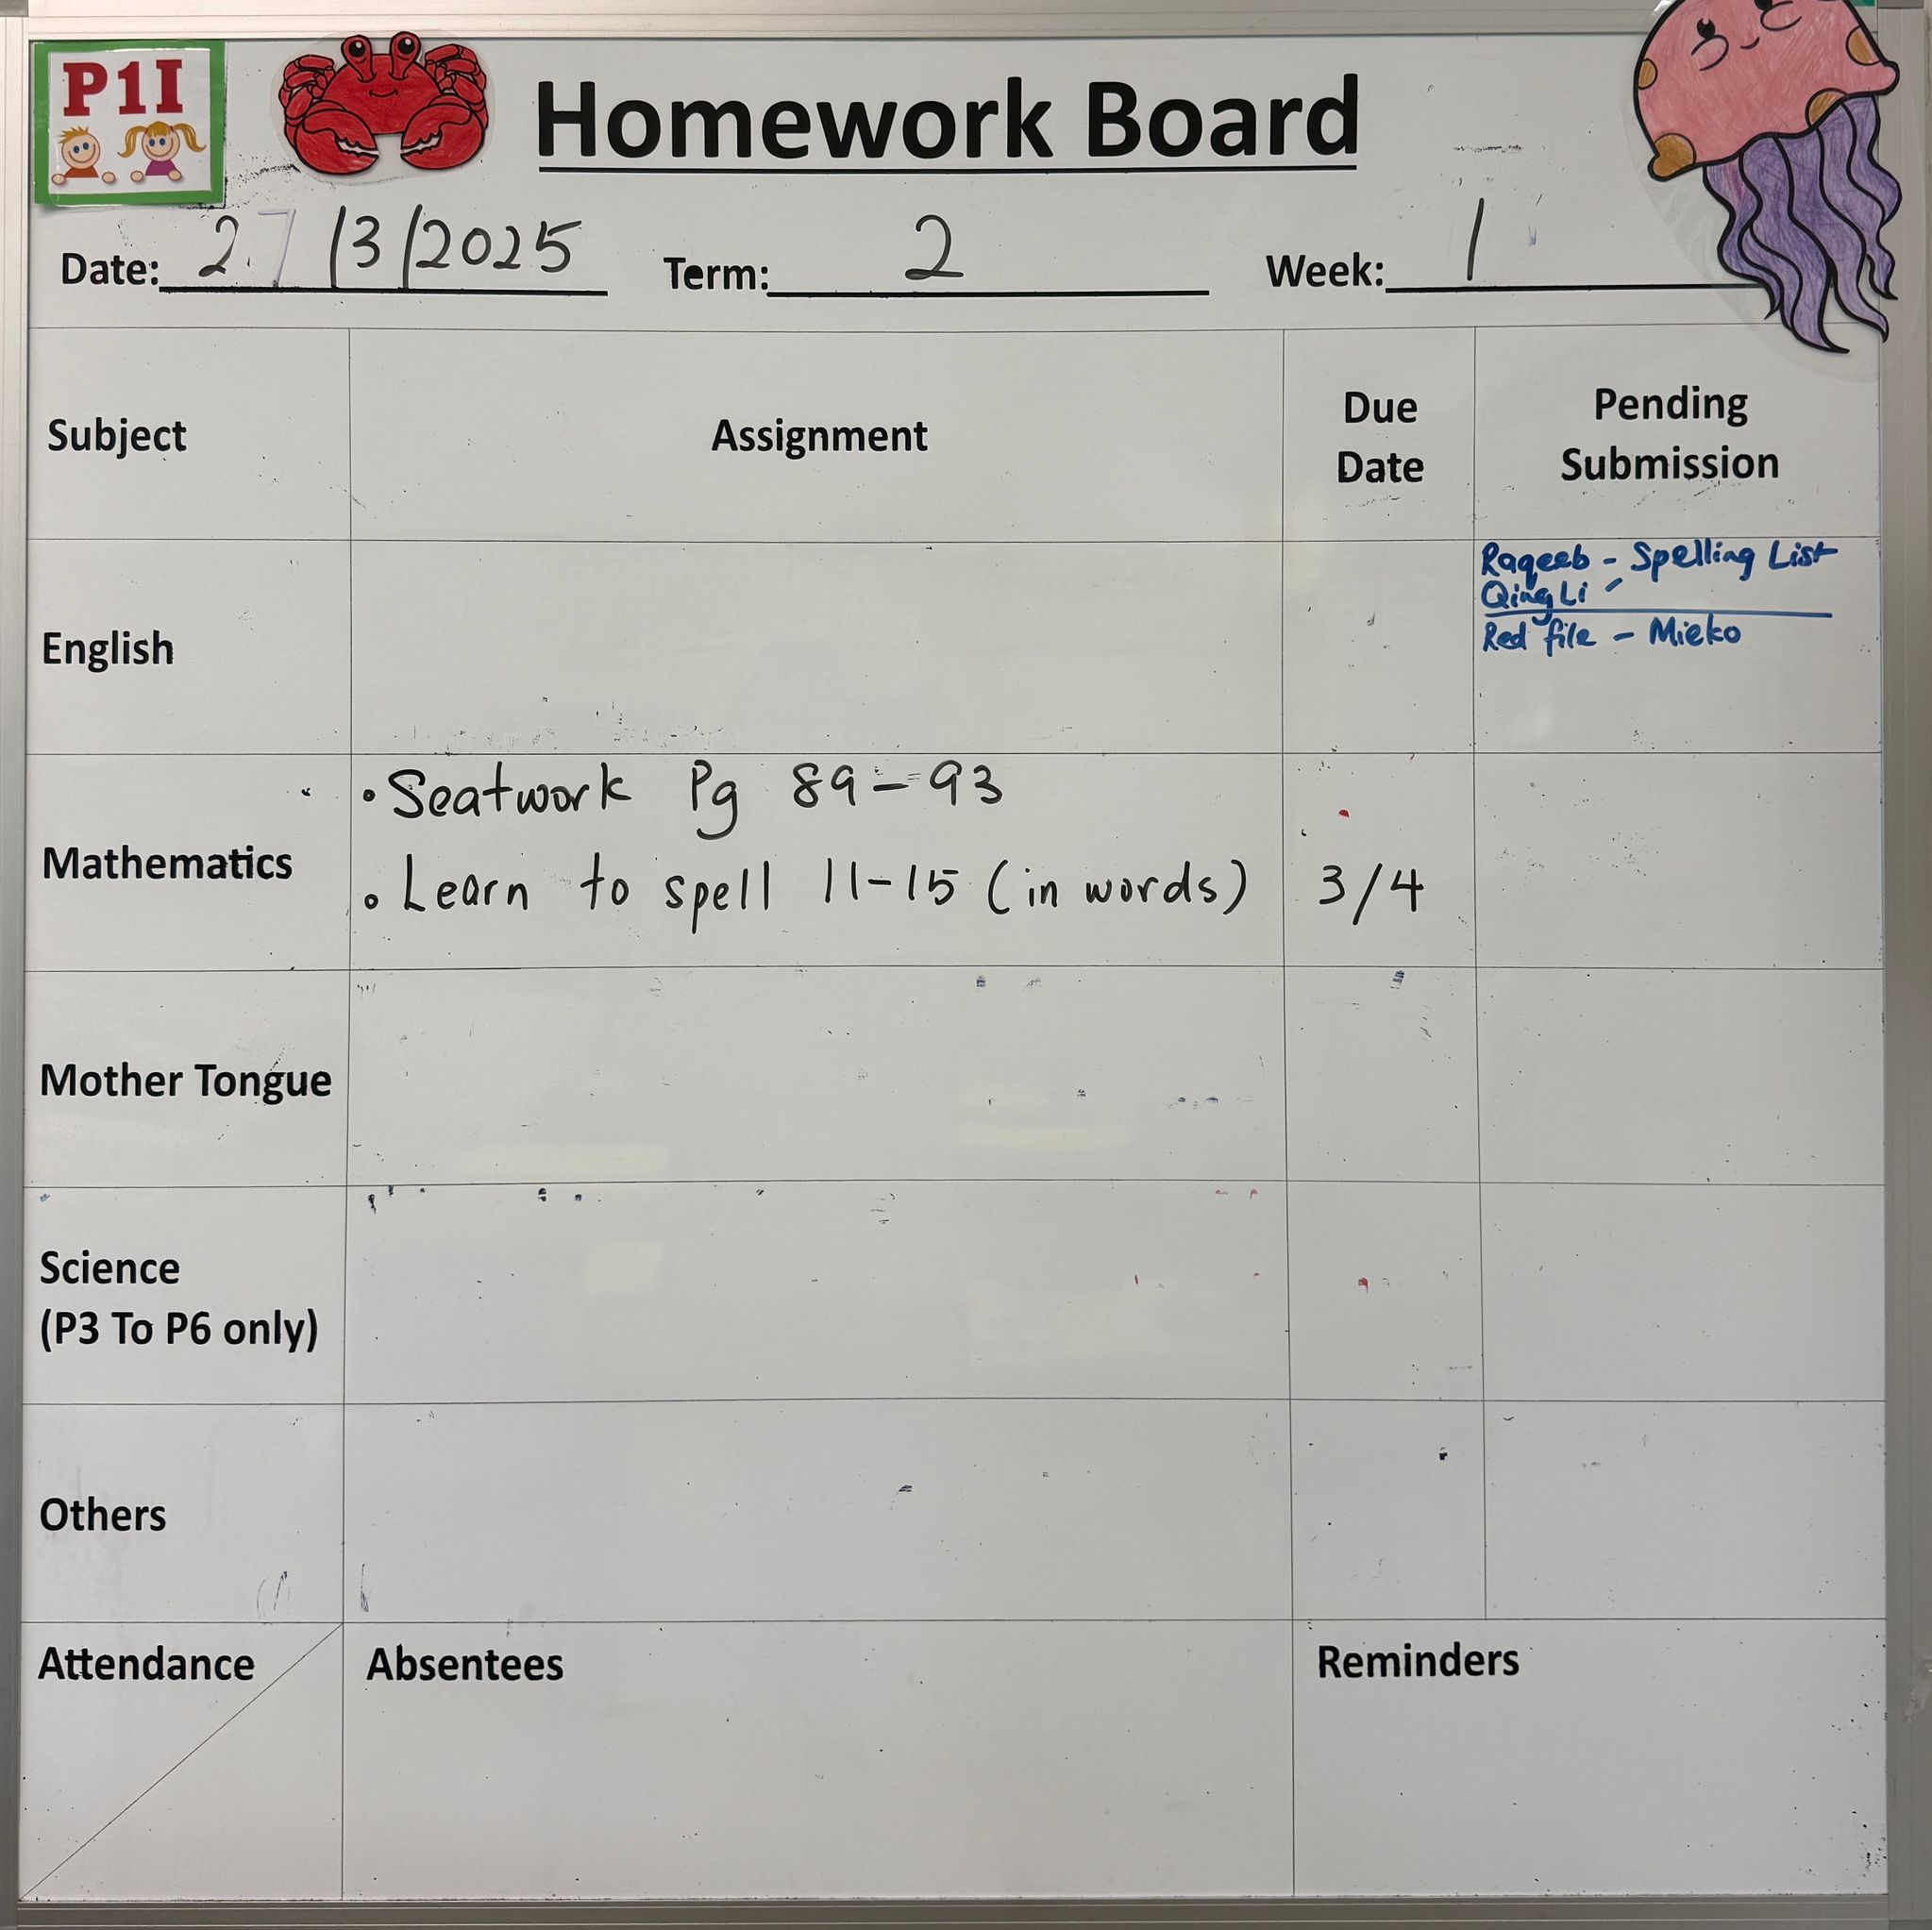 P1I
Homework Board
Date: 27/3/2025 Term: 2 Week: 1
Subject Assignment Due Date Pending Submission
English
Raqeeb - Spelling List
Qing Li
Red file - Mieko
Mathematics
• Seatwork Pg 89-93
• Learn to spell 11-15 (in words) 3/4
Mother Tongue
Science
(P3 To P6 only)
Others
Attendance Absentees Reminders